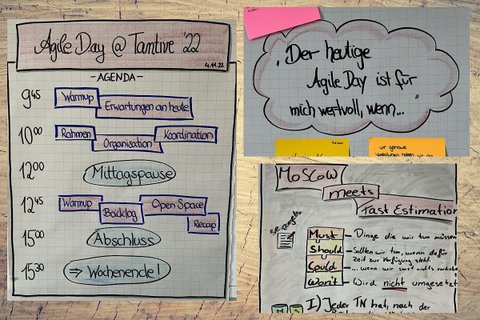 Agile Day @ Tamtive '22
4.11.22
- AGENDA -
9⁴⁵ Warmup Erwartungen an heute
10⁰⁰ Rahmen Organisation Koordination
12⁰⁰ Mittagspause
12⁴⁵ Warmup Backlog Open Space Recap
15⁰⁰ Abschluss
15³⁰ → Wochenende!
"Der heutige
Agile Day ist für
mich wertvoll, wenn..."
MoSCoW
meets
Fast Estimation
Must - Dinge die wir tun müssen
Should - Sollten wir tun, wenn dafür
Zeit zur Verfügung steht
Could - ... wenn wir sonst nichts
Won't - Wird nicht umgesetzt
1) Jeder TN hat, nach der